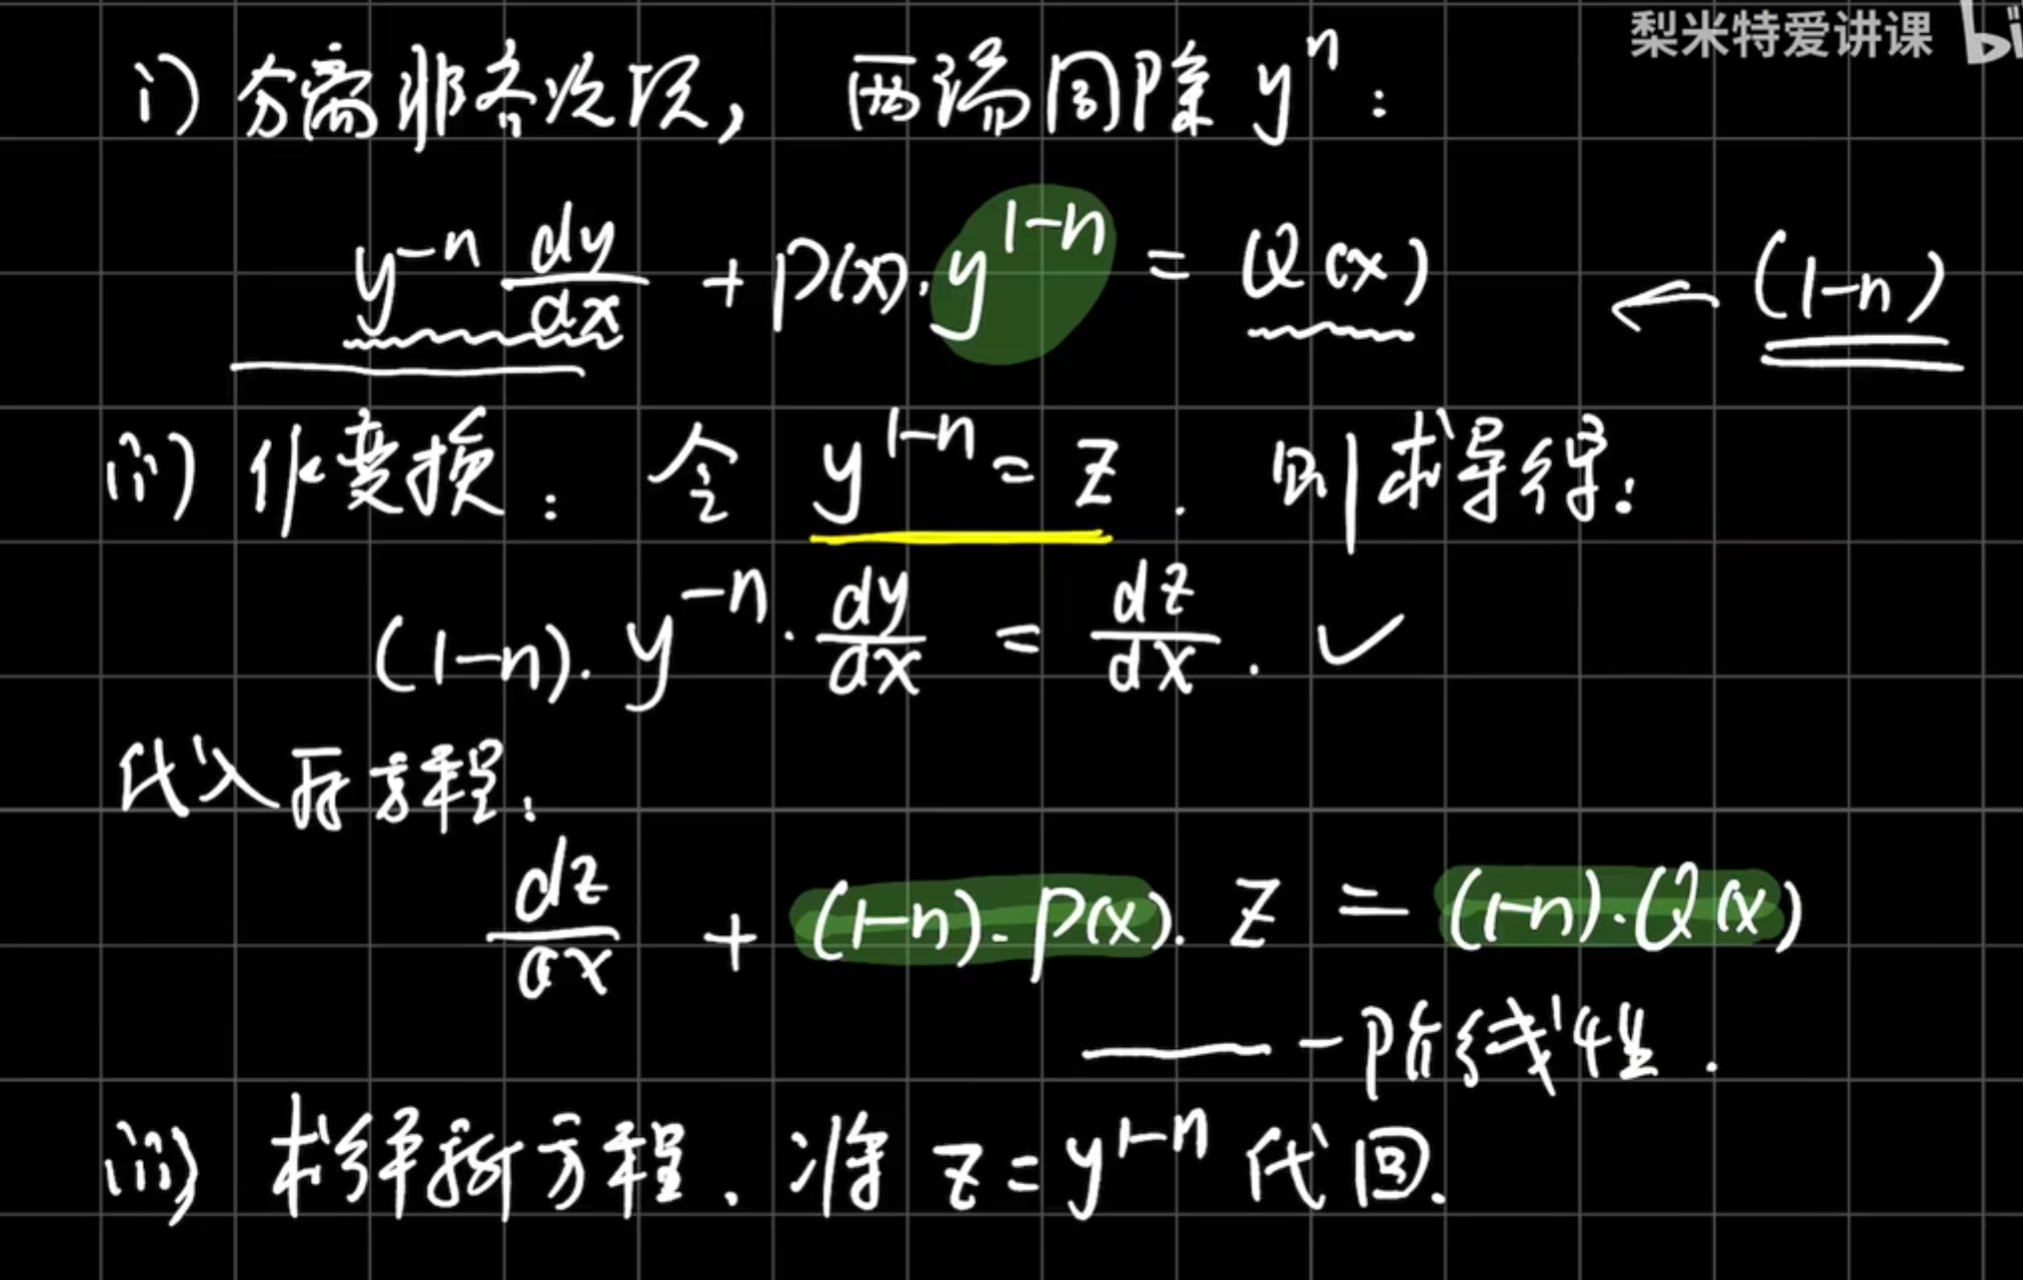 梨米特爱讲课 bi
i) 分离非齐次项， 两端同除 yⁿ：
y⁻ⁿ dy/dx + P(x)·y¹⁻ⁿ = Q(x) ← (1-n)
ii) 作变换： 令 y¹⁻ⁿ = z . 则求导得：
(1-n)·y⁻ⁿ·dy/dx = dz/dx . ✓
代入原方程：
dz/dx + (1-n)·P(x)·z = (1-n)·Q(x)
—— 一阶线性 .
iii) 求解新方程、将 z = y¹⁻ⁿ 代回.